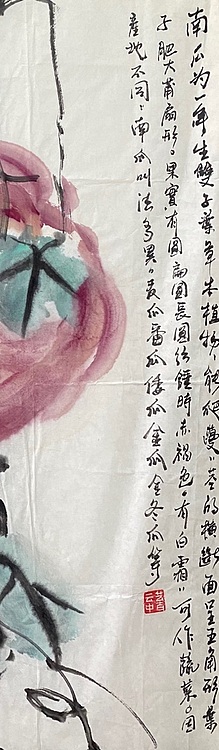 南瓜为一年生雙子葉草本植物，能爬蔓，莖的横斷面呈五角形，葉
子肥大莆扇形。果實有圆扁圆長圆缽錘時赤褐色。有白霜，可作蔬菜。因
產地不同，南瓜叫法多異。麦瓜番瓜倭瓜金瓜金冬瓜等